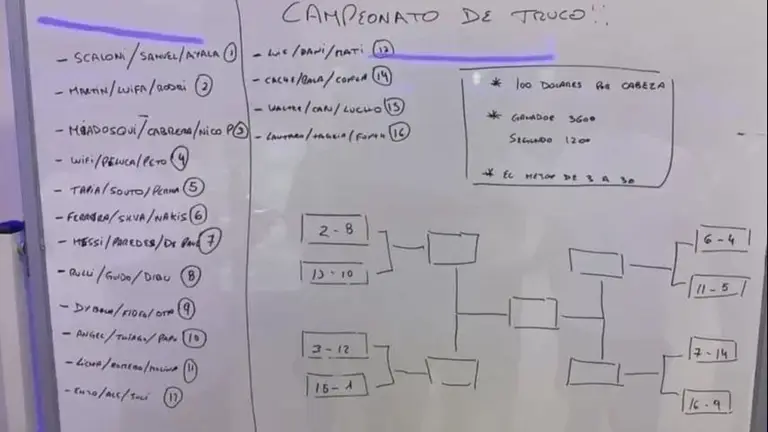 CAMPEONATO DE TRUCO!!
- SCALONI/SAMUEL/AYALA 1
- MARTIN/LUIFA/RODRI 2
- MIADOSQUI/CABRERA/NICO P 3
- WIFI/PELUCA/PETO 4
- TAPIA/SOUTO/PERNA 5
- FERREYRA/SILVA/NAKIS 6
- MESSI/PAREDES/DE PAUL 7
- RULLI/GUIDO/DIBU 8
- DYBALA/ 9
- ANGEL/THIAGO/PAPU 10
- LICHA/ROMERO/MOLINA 11
- ENZO/ALE/JULI 12
- DANI/MATI 13
- 14
- LUCHO 15
- LAUTARO/ 16
* 100 DOLARES POR CABEZA
* GANADOR 3600
SEGUNDO 1200
* EL MEJOR DE 3 A 30
2-8
13-10
3-12
15-1
6-4
11-5
7-14
16-9